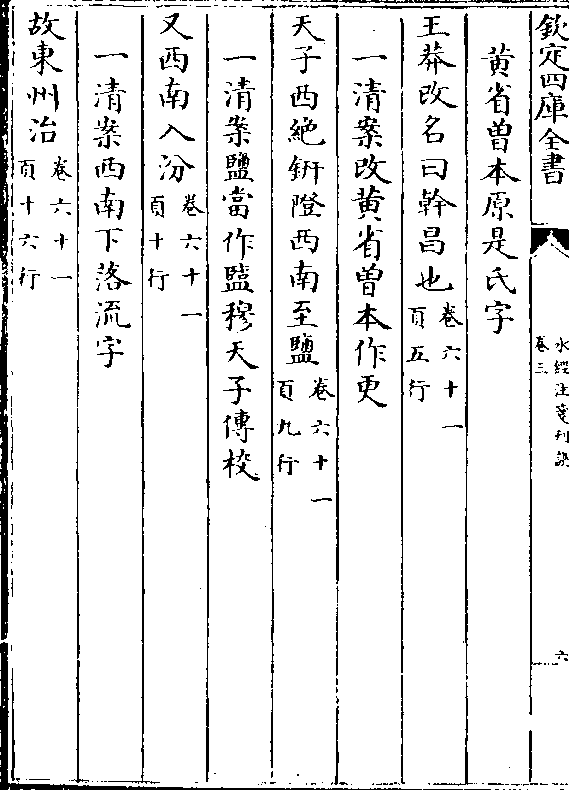 欽定四庫全書
水經注箋刊誤
卷三
六
黄省曽本原是氏字
王莽改名曰幹昌也卷六十一
頁五行
一清案改黄省曽本作更
天子西絶鈃隥西南至鹽卷六十一
頁九行
一清案鹽當作盬穆天子傳校
又西南入汾卷六十一
頁十行
一清案西南下落流字
故東州治卷六十一
頁十六行